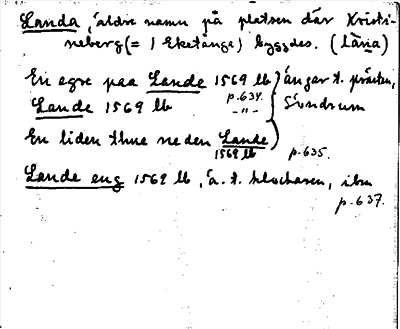 Landa, äldre namn på platsen där Kristi-
neberg (= i Eketånga) byggdes. (låna)
En egre paa Lande 1569 lb } ängar t. prästen,
p. 634.
Lande 1569 lb -"- Söndrum
En liden thue neden Lande
1569 lb p. 635.
Lande eng 1569 lb, ä. t. klockaren, ibm
p. 637.